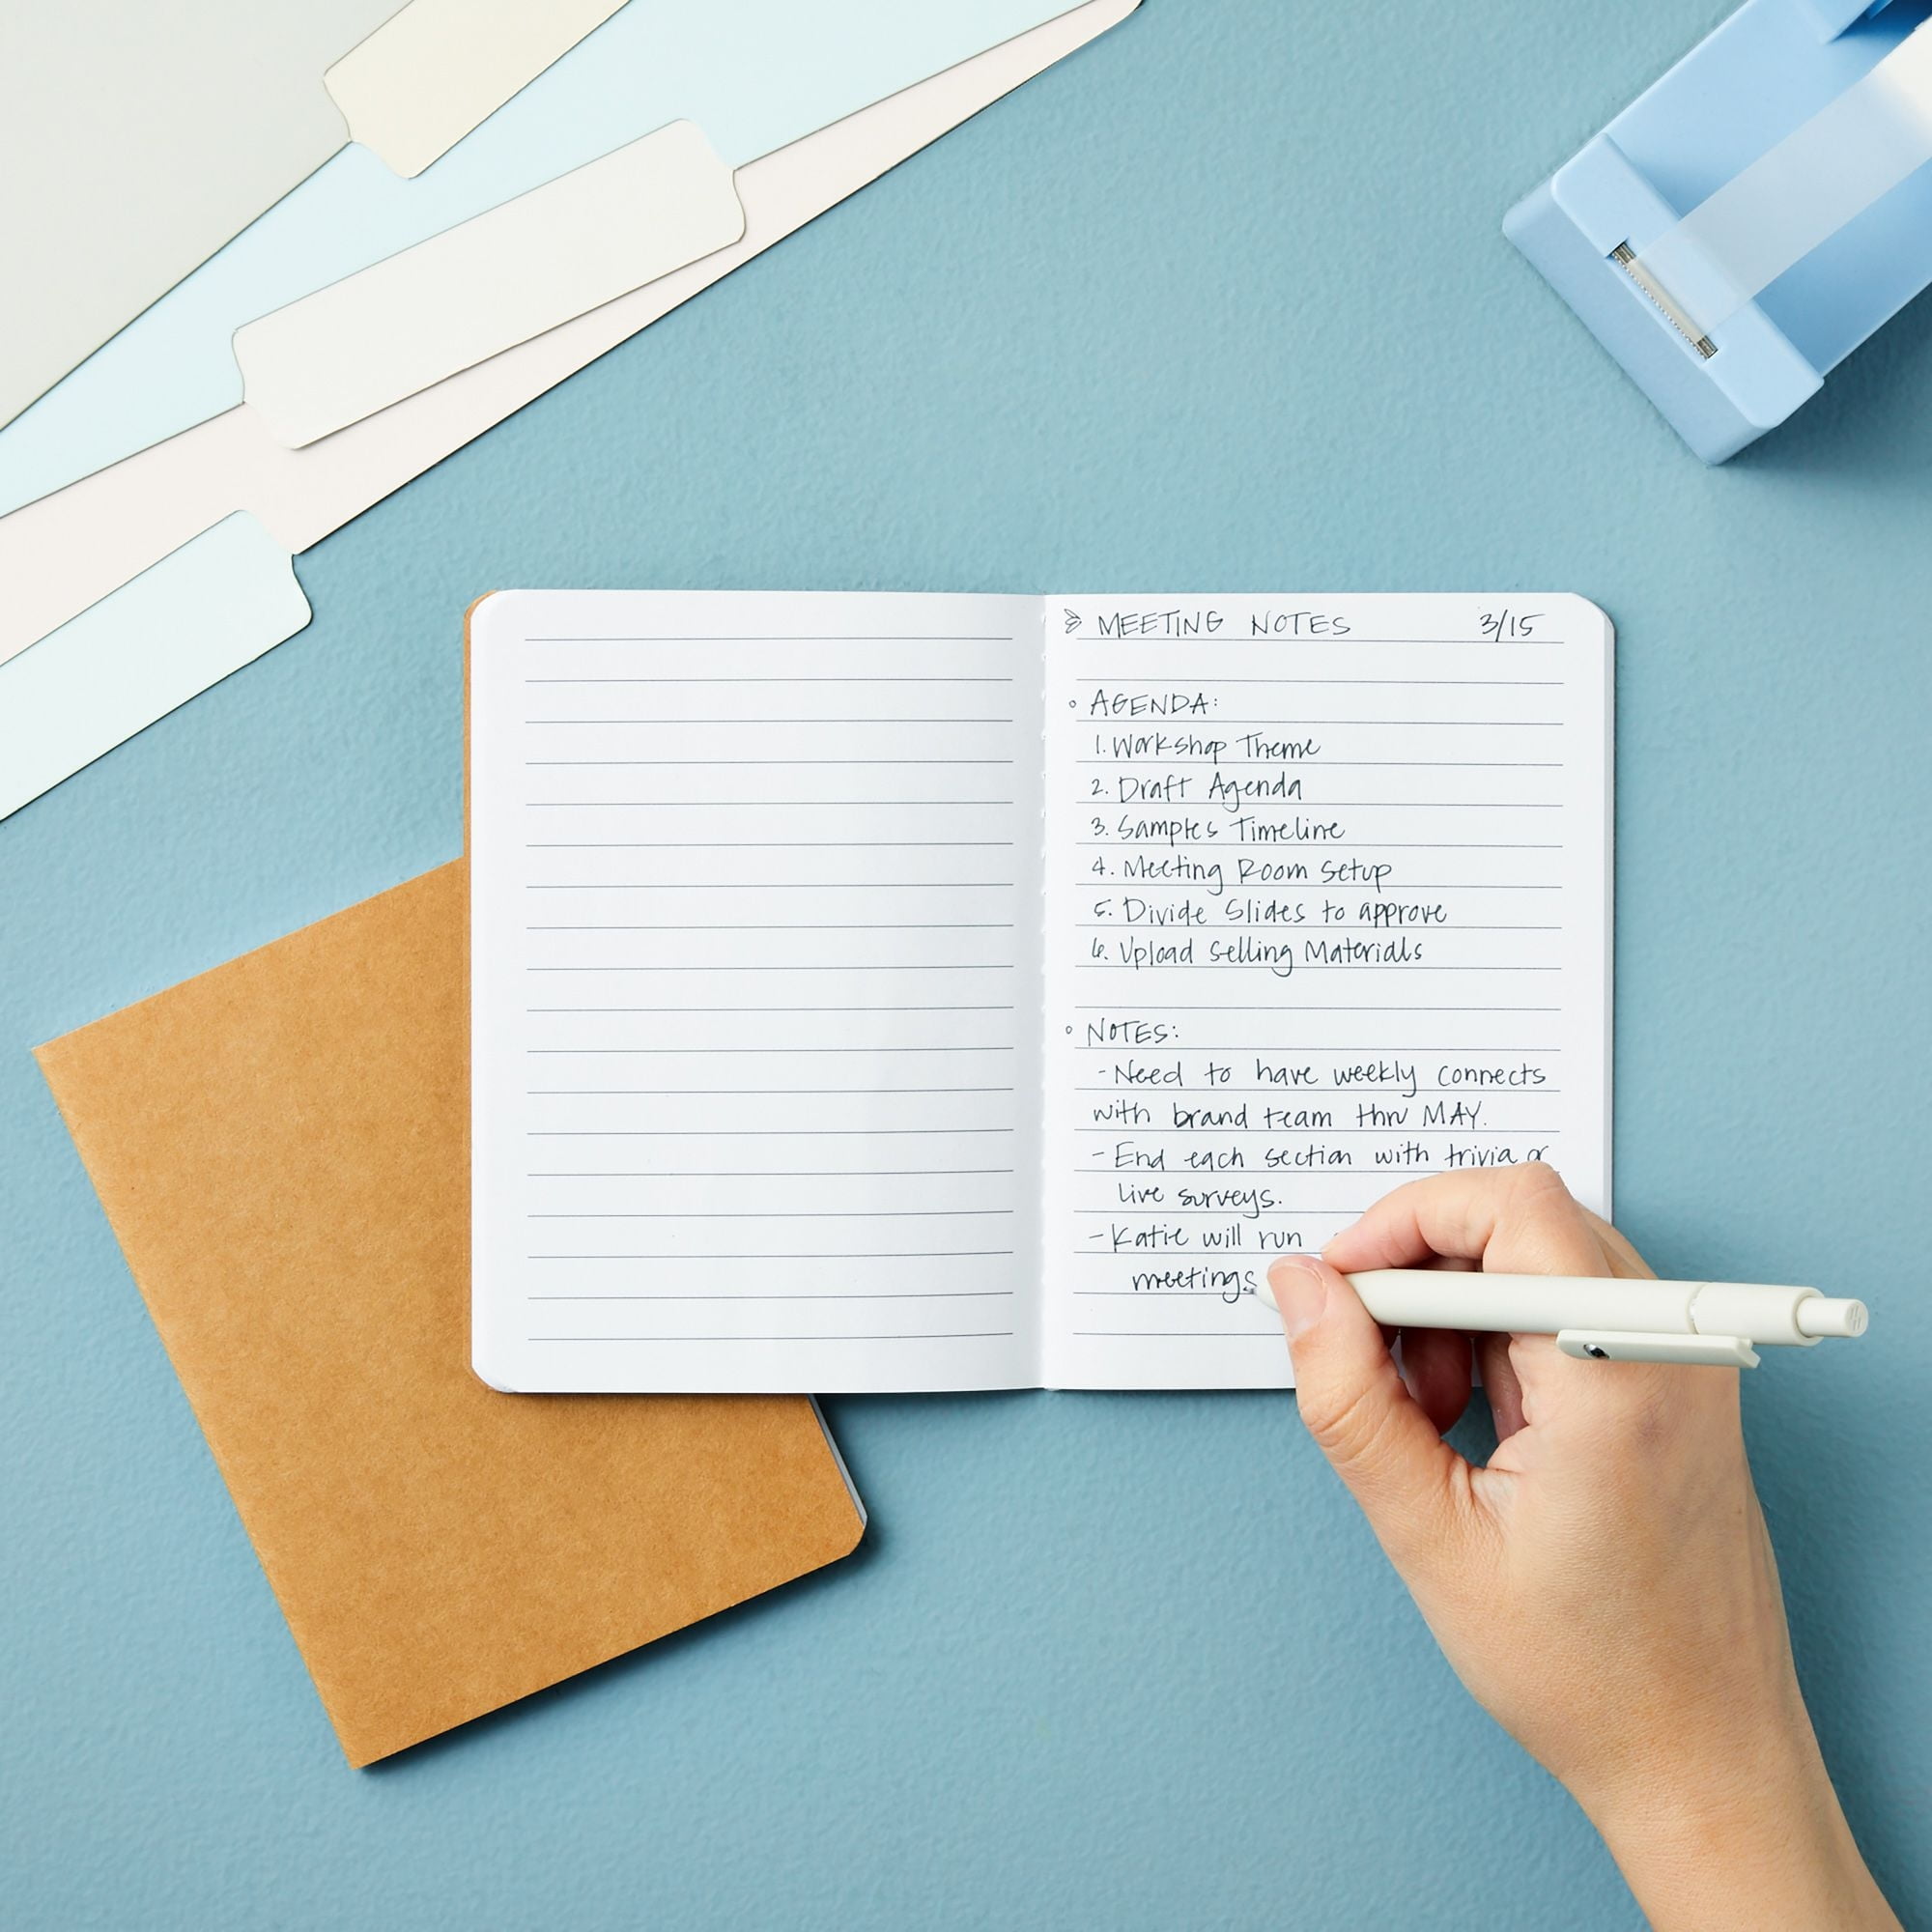 MEETING NOTES 3/15
AGENDA:
1. Workshop Theme
2. Draft Agenda
3. Samples Timeline
4. Meeting Room Setup
5. Divide Slides to approve
6. Upload Selling Materials
NOTES:
- Need to have weekly connects
with brand team thru MAY.
- End each section with trivia or
live surveys.
- Katie will run
meetings